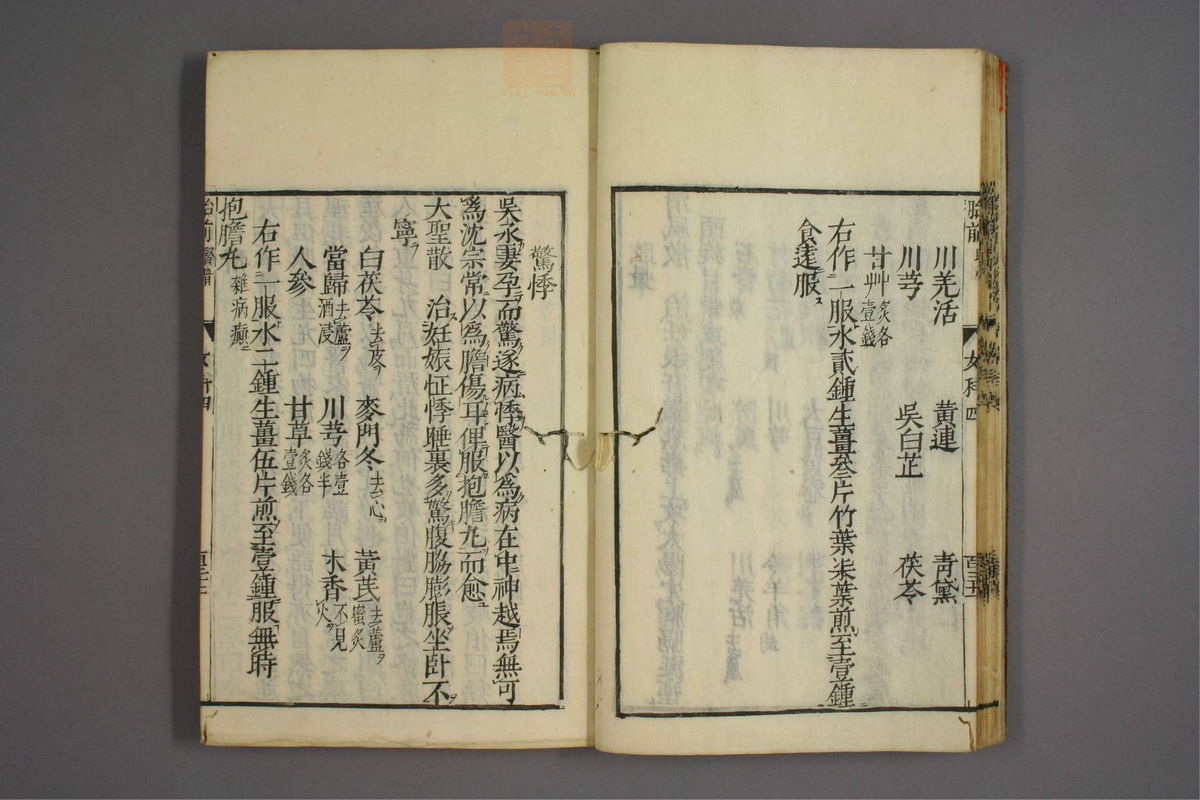 川羌活　黃連　青黛
川芎　吳白芷　茯苓
甘艸炙各壹錢
右作一服水貳鍾生薑叁片竹葉柒葉煎至壹鍾
食遠服
驚悸
吳永妻孕而驚遂病悸醫以為病在中神越焉無可
為沈宗常以為膽傷耳俾服抱膽丸而愈
大聖散　治妊娠怔悸睡裏多驚腹脇膨脹坐卧不
寧
白茯苓去皮　麥門冬去心　黃芪去蘆蜜炙
當歸去蘆酒浸　川芎各壹錢半　木香不見火
人參　甘草炙各壹錢
右作一服水二鍾生薑伍片煎至壹鍾服無時
抱膽丸雜病癲
女科四